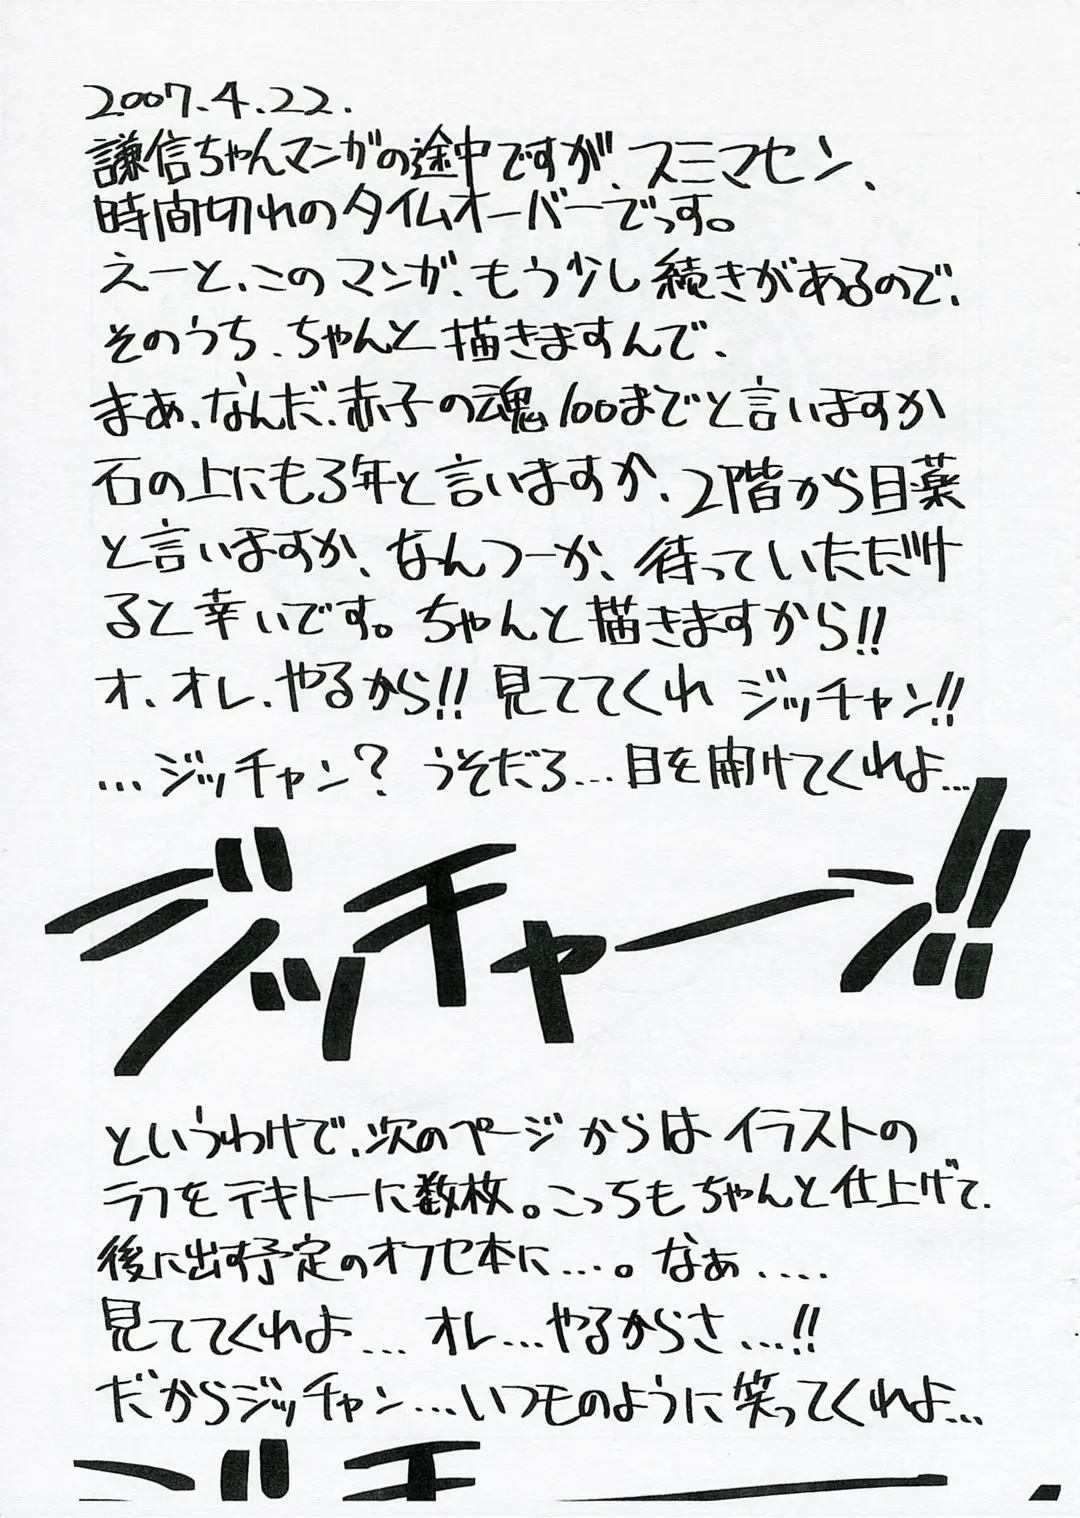 2007.4.22.
謙信ちゃんマンガの途中ですが、スミマセン、
時間切れのタイムオーバーでっす。
えーと、このマンガ、もう少し続きがあるので、
そのうち、ちゃんと描きますんで、
まあ、なんだ、赤子の魂100までと言いますか
石の上にも3年と言いますか、2階から目薬
と言いますか、なんつーか、待っていただけ
ると幸いです。ちゃんと描きますから!!
オ、オレ、やるから!! 見ててくれ ジッチャン!!
...ジッチャン? うそだろ...目を開けてくれよ...
ジッチャーン!!
というわけで、次のページからはイラストの
ラフをテキトーに数枚。こっちもちゃんと仕上げて、
後に出す予定のオフセ本に...。なぁ....
見ててくれよ...オレ...やるからさ...!!
だからジッチャン...いつものように笑ってくれよ...